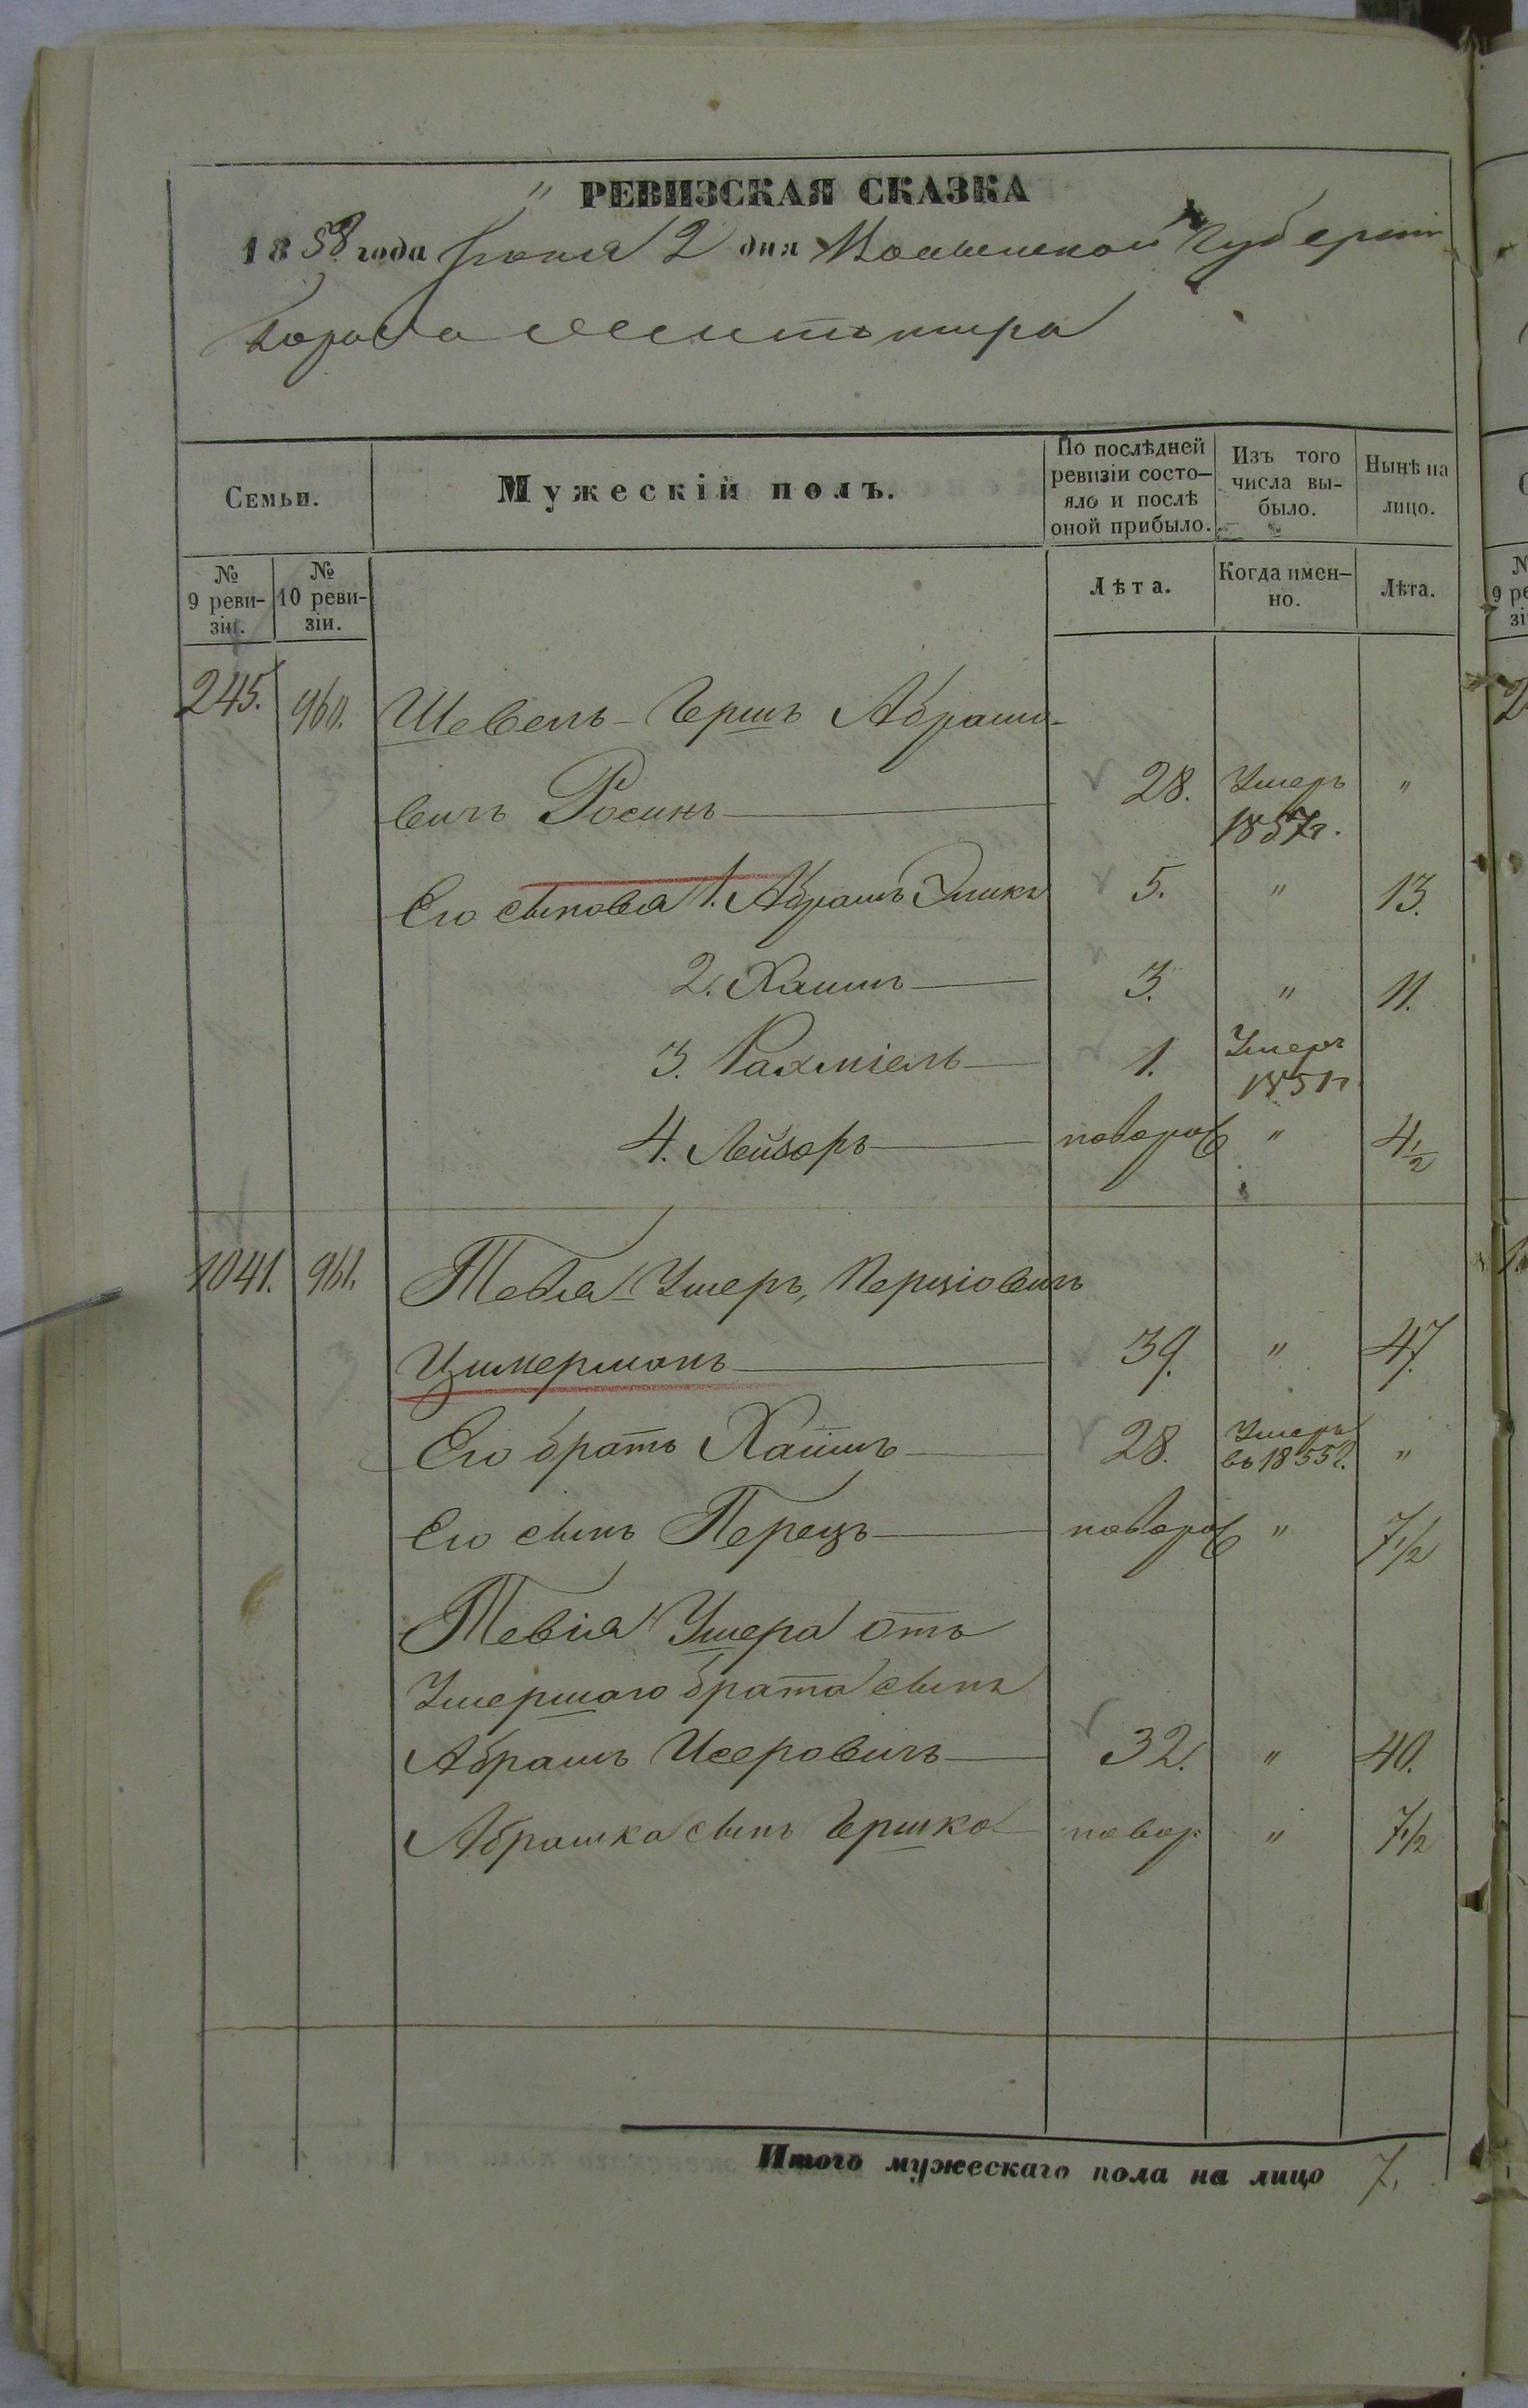 " РЕВИЗСКАЯ СКАЗКА
1858 года Іюня 2 дня Волынской Губерніи
города Житомира
Семьи.
Мужескій полъ.
По послѣдней ревизіи состо-яло и послѣ оной прибыло.
Изъ того числа вы-было.
Нынѣ на лицо.
№ 9 реви-зіи.
№ 10 реви-зіи.
Лѣта.
Когда имен-но.
Лѣта.
245. 960. Шевель-Гершъ Абрамо-
вичъ Росинъ 28. Умеръ 1857г. "
Его сыновья 1. Абрамъ 5. " 13.
2. Хаимъ 3. " 11.
3. Рахміель 1. Умеръ 1851г.
4. Лейзоръ новорож " 4 1/2
1041. 961. Тевія Ушеръ, Перціовичъ
Цимерманъ 39. " 47.
Его братъ Хаимъ 28. Умеръ въ 1855г. "
Его сынъ Перецъ новорож " 7 1/2
Тевія Ушера отъ
Умершаго брата сынъ
Абрамъ Исеровичъ 32. " 40.
Абрашка сынъ Гершко новор " 7 1/2
Итого мужескаго пола на лицо 7.